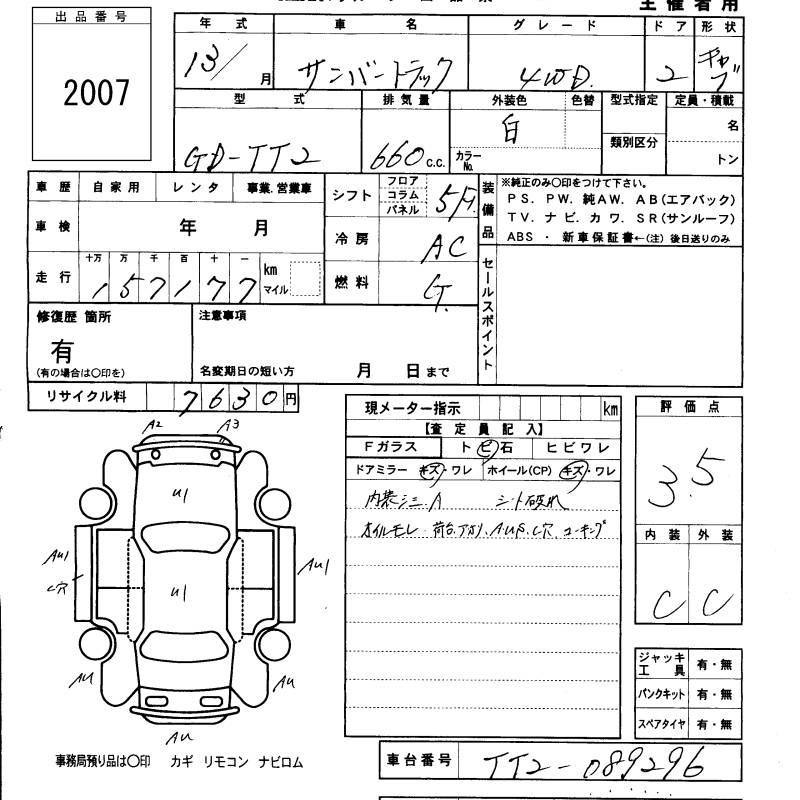 主催者用
出品番号
2007
年式 車名 グレード ドア 形状
13/ 月 サンバートラック 4WD. 2 キャブ
型式 排気量 外装色 色替 型式指定 定員・積載
GD-TT2 660 c.c. 白 カラーNo. 類別区分 名
トン
車歴 自家用 レンタ 事業.営業車
シフト フロア コラム パネル 5F.
車検 年 月
冷房 AC
走行 十万 万 千 百 十 一
1 5 7 1 7 7 km マイル
燃料 G.
装備品
※純正のみ〇印をつけて下さい。
PS. PW. 純AW. AB(エアバック)
TV. ナビ. カワ. SR(サンルーフ)
ABS ・ 新車保証書←(注) 後日送りのみ
セールスポイント
修復歴 箇所
有
(有の場合は〇印を)
注意事項
名変期日の短い方 月 日まで
リサイクル料 7630円
現メーター指示 km
【査定員記入】
Fガラス ト ピ 石 ヒビワレ
ドアミラー キズ・ワレ ホイール(CP) キズ・ワレ
内装シミ.A シート破れ
オイルモレ 荷台.アオリ.AUS.C穴.コーキング
評価点
3.5
内装 外装
C C
ジャッキ工具 有・無
パンクキット 有・無
スペアタイヤ 有・無
A2 A3
U1
AU1
C穴
U1
AU1
AU
AU
AU
事務局預り品は〇印 カギ リモコン ナビロム
車台番号 TT2-089296